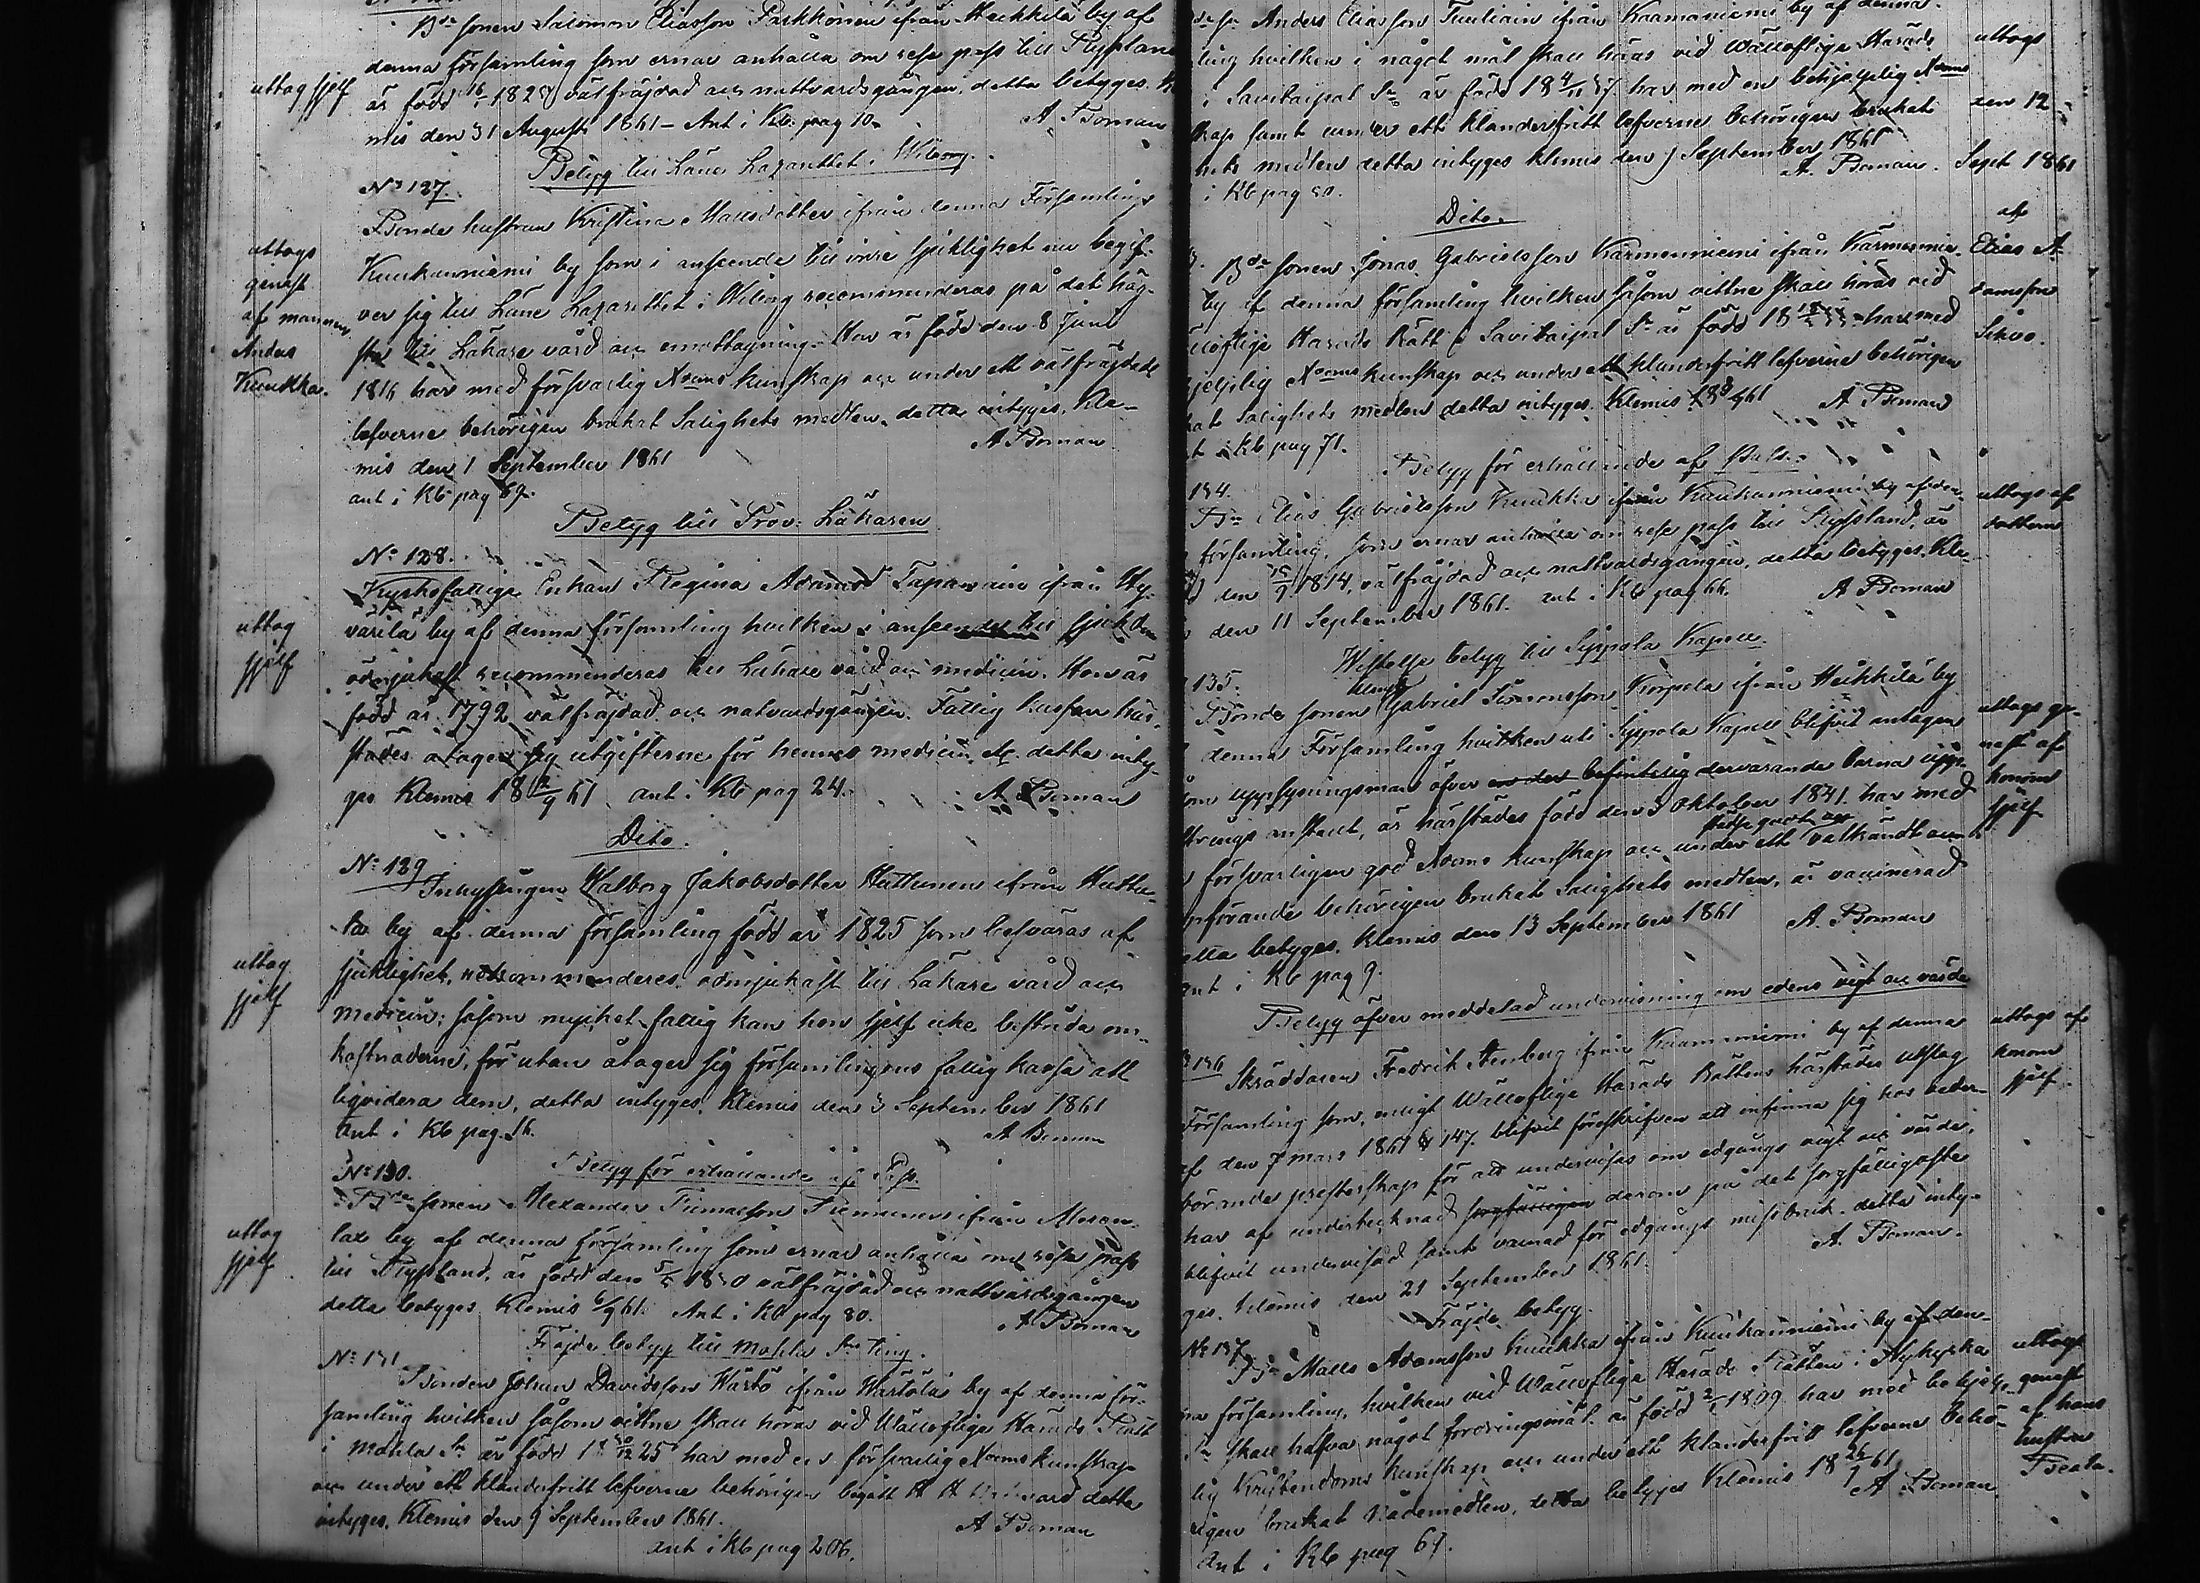 Bde sonen Salomon Eliasson Parkkonen ifrån Heikkilä by af
denna Församling som ernar anhålla om rese pass till Ryssland
uttog sjelf
är född 1825 välfräjdad och nattvardsgången, detta betyges. Kle
mis den 31 Augusti 1861 – Ant i Kb. pag 10.
A Boman
Betyg till Läne Lazarettet i Wiborg.
No 127.
Bonde hustrun Kristina Mattsdotter ifrån denna Församlings
uttogs
genast
af mannen
Anders
Kuukka.
Kuukanniemi by som i anseende till inre sjuklighet nu begif-
ver sig till Läne Lazarettet i Wiborg recommenderas på det hög-
sta till Läkare vård och emottagning. Hon är född den 8 Juni
1816 har med försvarlig Xdoms kunskap och under ett välfräjdadt
lefverne behörigen brukat Salighets medlen, detta intyges, Kle-
mis den 1 September 1861
A Boman
ant i Kb pag 69.
Betyg till Prov: Läkaren
No 128.
Kyrkofattiga Enkan Regina Adamsd Tapanain ifrån Hy-
uttog
sjelf
värilä by af denna församling hvilken i anseende till sjukdom
ödmjukast recommenderas till Läkare vård och medicin. Hon är
född år 1792 välfräjdad och natvardsgången. Fattig kassan här-
städes åtager sig utgifterne för hennes medicin &c. detta inty-
ges Klemis 18 12/9 61 ant i Kb pag 24.
A Boman
Dito.
No 129
Inhysingen Walborg Jakobsdotter Huttunen ifrån Huttu-
la by af denna församling född år 1825 som besväras af
uttog
sjelf
sjuklighet, rekommenderes ödmjukast till Läkare vård och
medicin; såsom mycket fattig kan hon sjelf icke bestrida om-
kostnaderne, för utan åtager sig församlingens fattig kassa att
liqvidera dem, detta intyges. Klemis den 3 September 1861
Ant i Kb pag. 56.
A Boman
No 130.
Betyg för erhållande af Pass.
Bde sonen Alexander Tuomasson Tuomainen ifrån
uttog
sjelf
lax by af denna församling som ernar anhålla om rese pass
till Ryssland, är född den 18 0 välfräjdad och nattvardsgången
detta betyges Klemis 6/9 61. Ant i Kb pag 80.
A Boman
Fräjde betyg till Mohla Sns Ting.
No 131
Bonden Johan Davidsson Wärtö ifrån Wärtölä by af denna för-
samling hvilken såsom vittne skall höras vid Wällofliga Härads Rätt
i Mohla Sn är född 18 25 har med en försvarlig Xdoms kunskap
och under ett klanderfritt lefverne behörigen begått H H Nattvard detta
intyges. Klemis den 9 September 1861.
A Boman
ant i Kb pag 206.
Anders Eliasson Tuuliain ifrån Kaamaniemi by af denna
ling hvilken i något mål skall höras vid Wällofliga Härads
i Savitaipal Sn är född 18 37 har med en behjelplig Xdoms
skap samt under ett klanderfritt lefverne behörigen brukat
hets medlen detta intyges Klemis den 9 September 1861
A. Boman.
i Kb pag 50.
uttogs
den 12
Sept 1861
af
Elias A-
damsson
Sihvo.
Dito.
Bde sonen Jonas Gabrielsson Kärmenniemi ifrån Kärmennie-
by af denna församling hvilken såsom vittne skall höras vid
ällofliga Härads Rätt i Savitaipal Sn är född 18 har med
hjelplig Xdoms kunskap och under ett klanderfritt lefverne behörigen
kat Salighets medlen detta intyges. Klemis 18 9 61
A Boman
t i Kb pag 71.
Betyg för erhållande af Pass.
134.
Bn Elias Gabrielsson Kuukka ifrån Kuukanniemi by af den-
församling, som ernar anhålla om rese pass till Ryssland, är
den 1814, välfräjdad och nattvardsgången, detta betyges. Kle-
den 11 September 1861. ant i Kb pag 66.
A Boman
uttogs af
dottern
Wistelse betyg till Sippola Kapell.
135.
Bonde sonen Gabriel Simonsson Korpela ifrån Heikkilä by
denna Församling hvilken uti Sippola Kapell blifvit antagen
om upplysningsman öfver dervarande barna upp-
strings anstalt, är härstädes född den 3 Oktober 1841. har med
försvarligen god Xdoms kunskap och under ett välkändt
nförande behörigen brukat Salighets medlen, är vaccinerad
etta betyges. Klemis den 13 September 1861
A. Boman
Ant i Kb pag 9.
uttogs ge-
nast af
honom
sjelf
Betyg öfver meddelad undervisning om edens vigt och värde
136
Skräddaren Fredrik Stenberg ifrån Kaamaniemi by af denna
Församling som, enligt Wällofliga Härads Rättens härstädes utslag
af den 7 mars 1861 § 147. blifvit föreskrifven att infinna sig hos veder-
börande presterskap för att undervisas om edgångs vigt och värde,
har af undertecknad sorgfälligen derom på det sorgfälligaste
blifvit undervisad samt varnad för edgångs missbruk. detta inty-
ges. Klemis den 21 September 1861.
A. Boman.
uttogs af
honom
sjelf.
Fräjde betyg.
No 137
Bn Matts Adamsson Kuukka ifrån Kuukanniemi by af den-
na församling, hvilken vid Wällofliga Härads Rätten i Nykyrka
Sn skall hafva något fordringsmål är född 1809 har med behjelp-
lig Kristendoms kunskap och under ett klanderfritt lefverne behö-
rigen brukat Nådemedlen, detta betyges Klemis 18 26/9 61
A Boman.
Ant i Kb pag 69.
uttogs
genast
af hans
hustru
Beata.